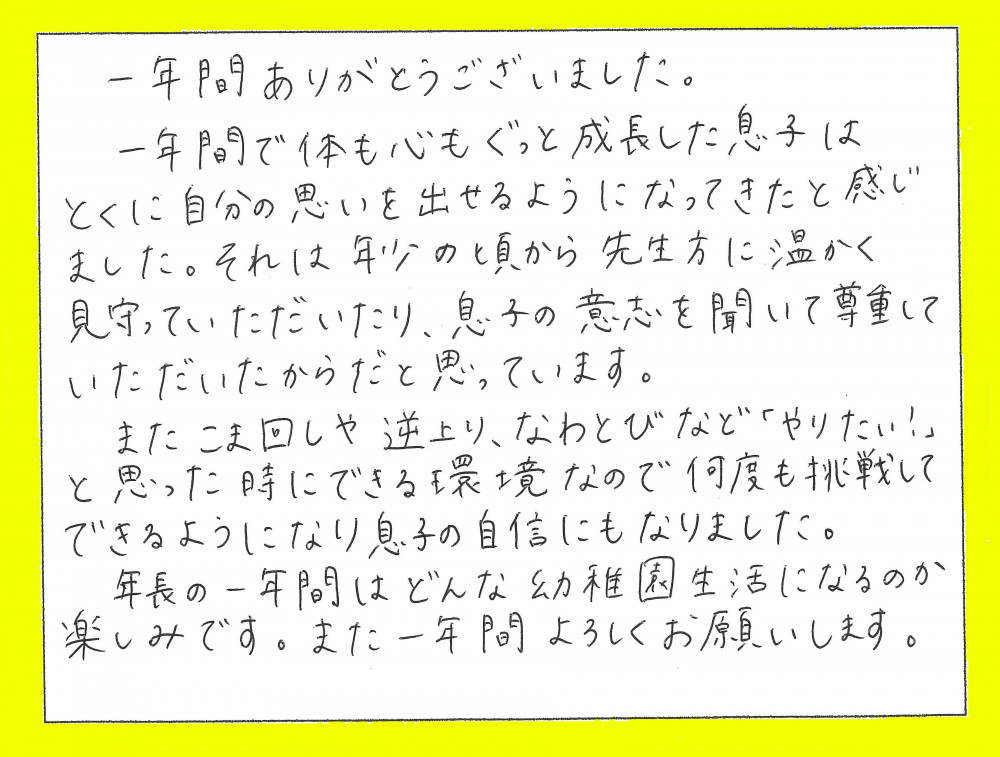 一年間ありがとうございました。
一年間で体も心もぐっと成長した息子は
とくに自分の思いを出せるようになってきたと感じ
ました。それは年少の頃から先生方に温かく
見守っていただいたり、息子の意志を聞いて尊重して
いただいたからだと思っています。
またこま回しや逆上り、なわとびなど「やりたい!」
と思った時にできる環境なので何度も挑戦して
できるようになり息子の自信にもなりました。
年長の一年間はどんな幼稚園生活になるのか
楽しみです。また一年間よろしくお願いします。